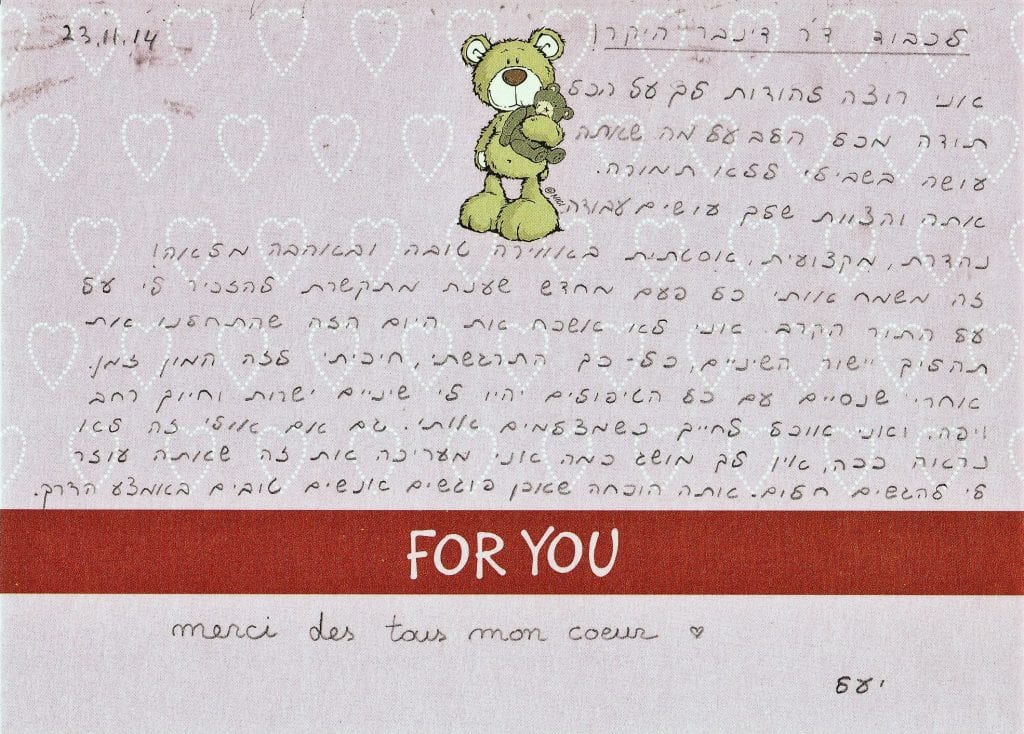 23.11.14
לכבוד ד"ר דינבר היקר!
אני רוצה להודות לך על הכל
תודה מכל הלב על מה שאתה
עושה בשבילי ללא תמורה.
אתה והצוות שלך עושים עבודה
נהדרת, מקצועית, אסטתית באווירה טובה ובאהבה מלאה!
זה משמח אותי כל פעם מחדש שענת מתקשרת להזכיר לי על
על התור הקרב. אני לא אשכח את היום הזה שהתחלנו את
תהליך יישור השיניים, כל-כך התרגשתי, חיכיתי לזה המון זמן.
אחרי שנסיים עם כל הטיפולים יהיו לי שיניים ישרות וחיוך רחב
ויפה. ואני אוכל לחייך כשמצלמים אותי. גם אם אולי זה לא
נראה ככה, אין לך מושג כמה אני מעריכה את זה שאתה עוזר
לי להגשים חלום. אתה הוכחה שאכן פוגשים אנשים טובים באמצע הדרך.
FOR YOU
merci des tous mon coeur ♡
יעל